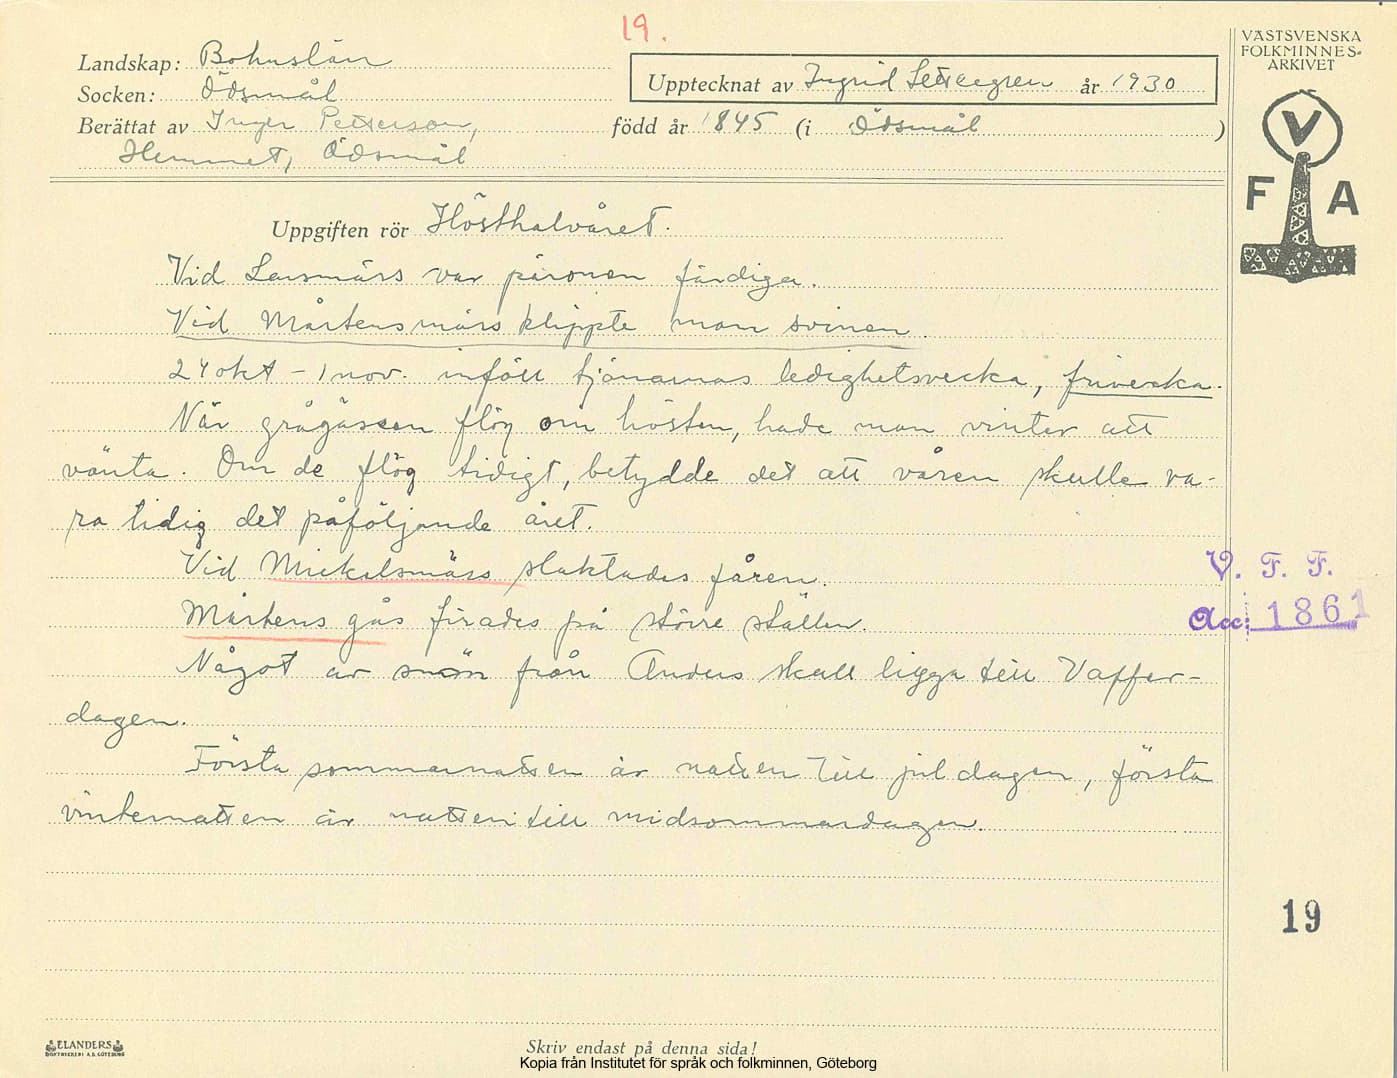 19.
VÄSTSVENSKA
FOLKMINNES-
ARKIVET
Landskap: Bohuslän
Upptecknat av Ingrid år 1930
Socken: Ödsmål
Berättat av Inger Petterson, född år 1845 (i Ödsmål )
Hemmet, Ödsmål
V
F A
Uppgiften rör Hösthalvåret.
Vid Larsmäss var päronen färdiga.
Vid Mårtensmäss klippte man svinen.
24 okt – 1 nov. inföll tjänarnas ledighetsvecka, frivecka.
När grågässen flög om hösten, hade man vinter att
vänta. Om de flög tidigt, betydde det att våren skulle va-
ra tidig det påföljande året.
Vid Mickelsmäss slaktades fåren.
V. F. F.
Mårtens gås firades på större ställen.
Acc: 1861
Något av snön från Anders skall ligga till Vaffer-
dagen.
Första sommarnatten är natten till juldagen, första
vinternatten är natten till midsommardagen.
19
ELANDERS
BOKTRYCKERI A.B. GÖTEBORG
Skriv endast på denna sida!
Kopia från Institutet för språk och folkminnen, Göteborg